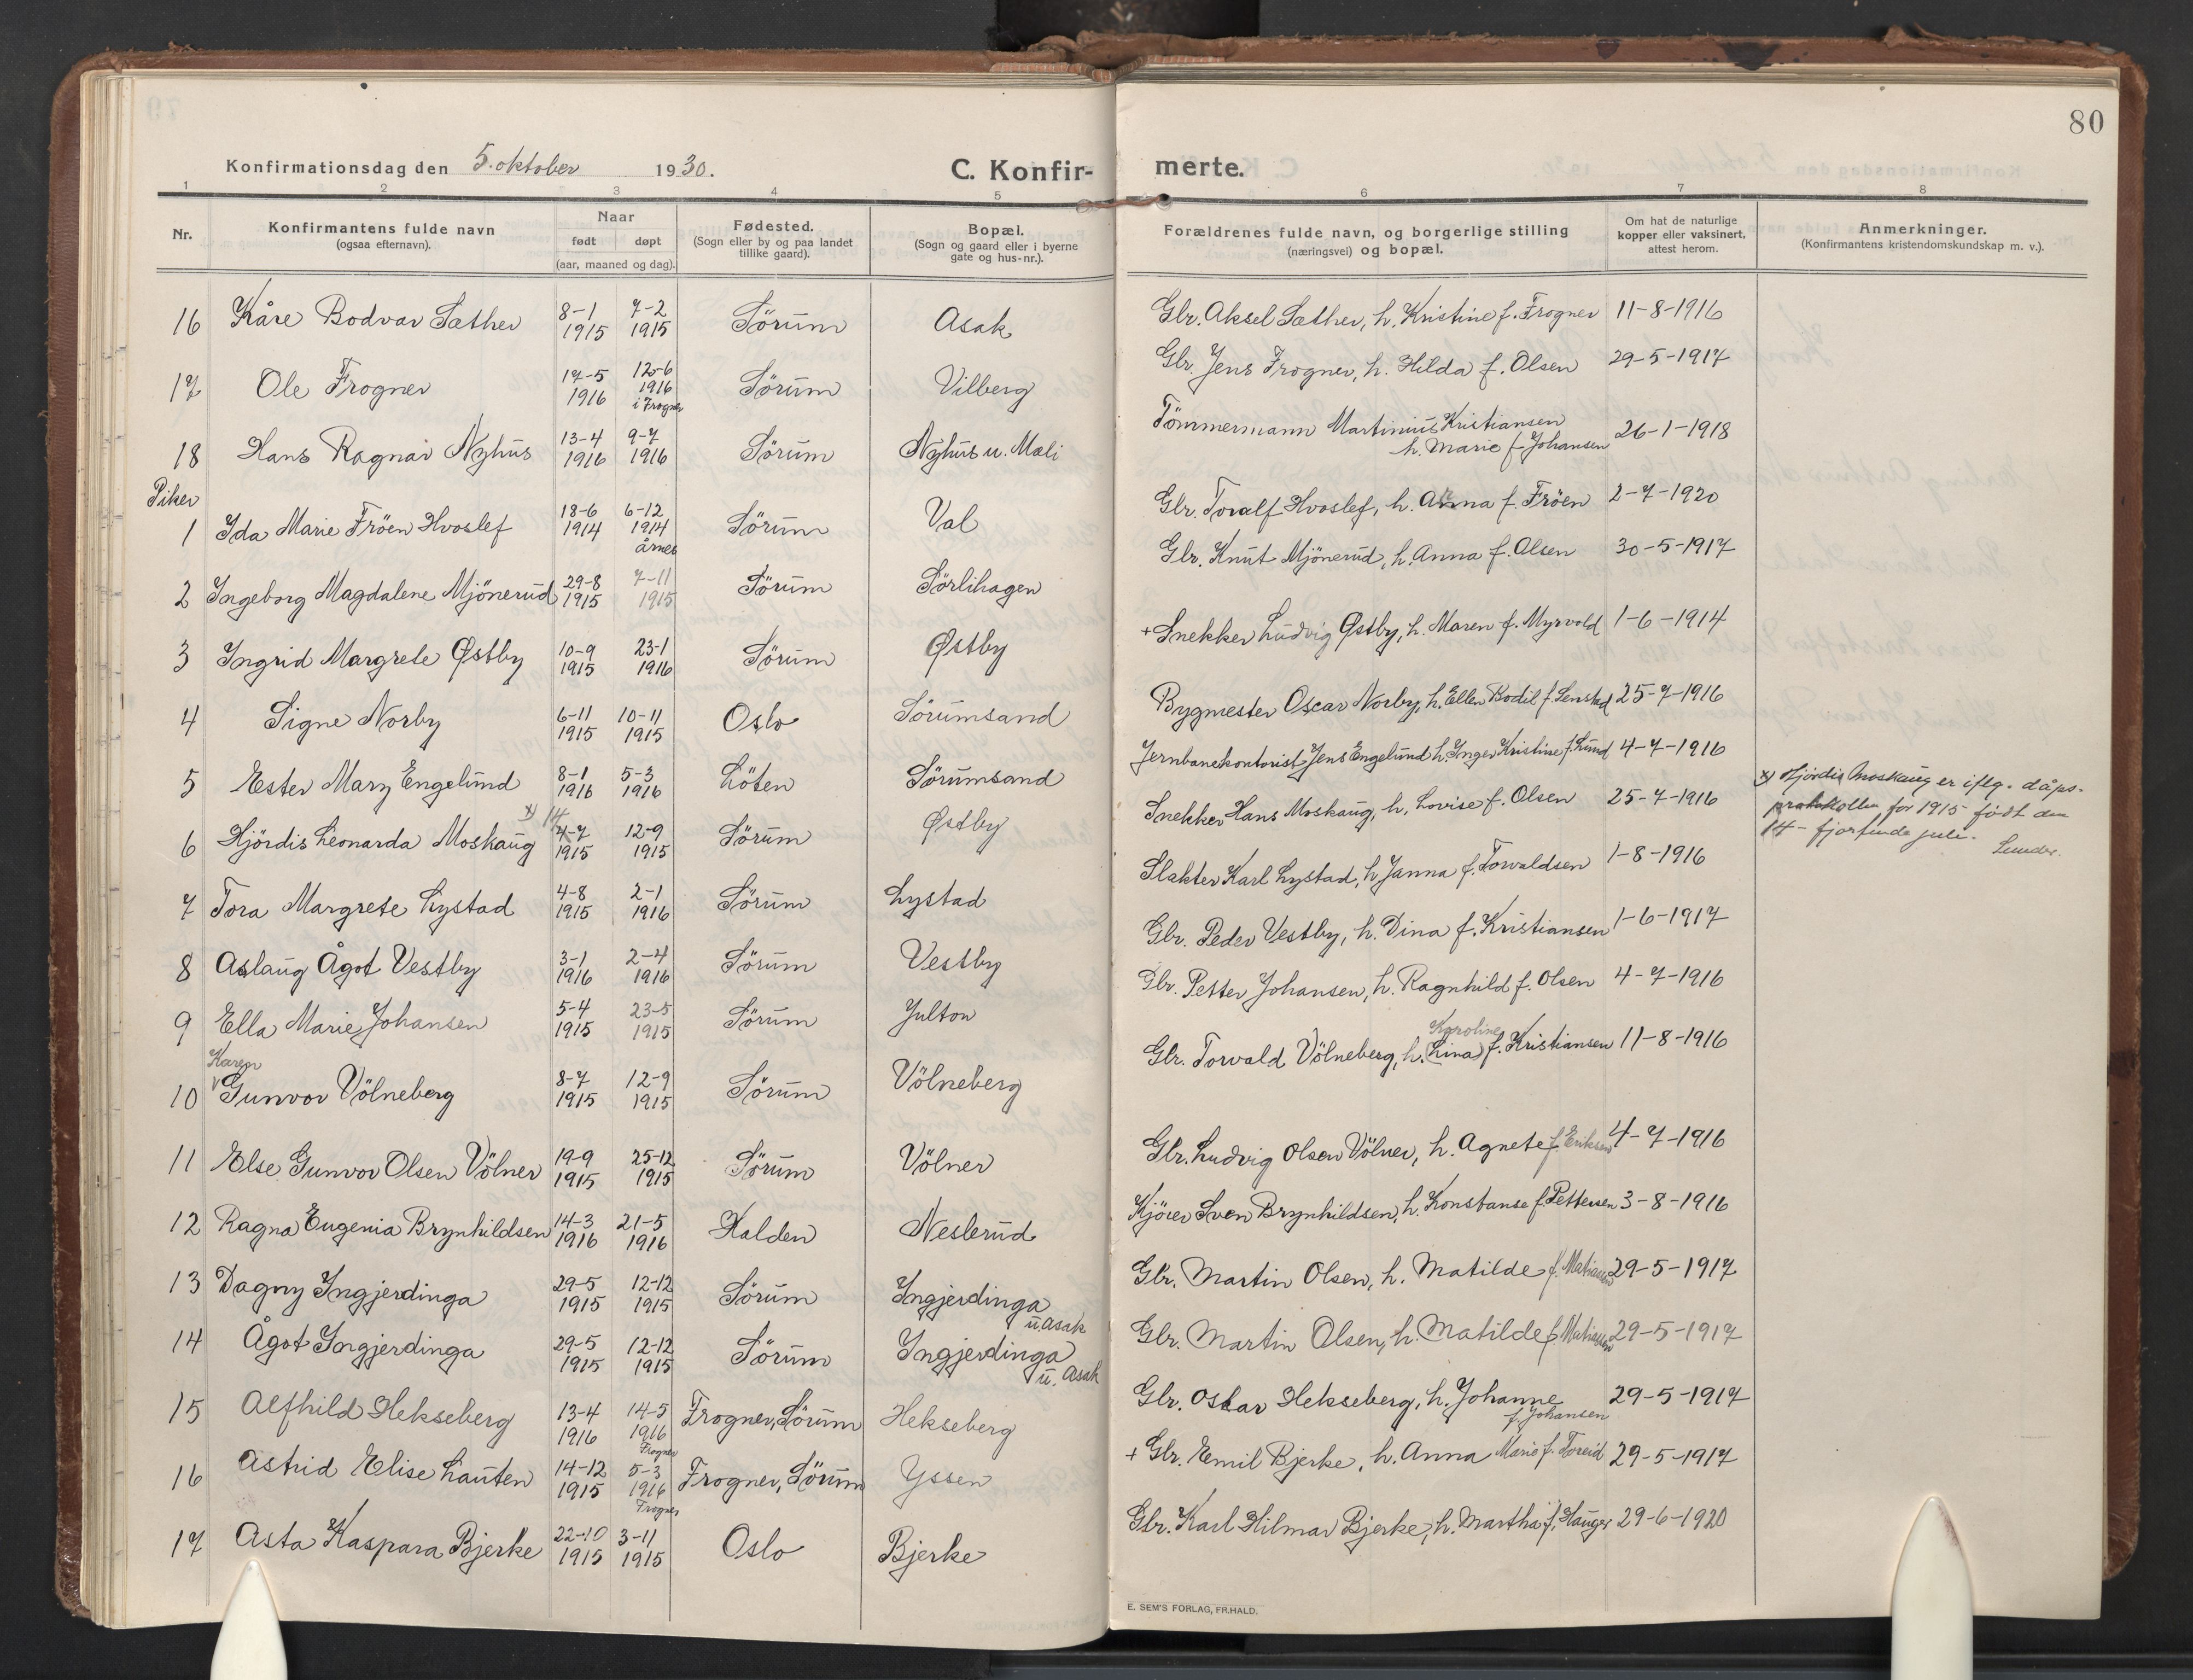 80
Konfirmationsdag den 5. oktober 1930. C. Konfir- merte.
1 2 3 4 5 6 7 8
Nr. Konfirmantens fulde navn (ogsaa efternavn). Naar født døpt (aar, maaned og dag). Fødested. (Sogn eller by og paa landet tillike gaard). Bopæl. (Sogn og gaard eller i byerne gate og hus-nr.). Forældrenes fulde navn, og borgerlige stilling (næringsvei) og bopæl. Om hat de naturlige kopper eller vaksinert, attest herom. Anmerkninger. (Konfirmantens kristendomskundskap m. v.).
16 Kåre Bodvar Sæther 8-1 1915 7-2 1915 Sörum Asak Gbr. Aksel Sæther, h. Kristine f. Frogner 11-8-1916
17 Ole Frogner 17-5 1916 12-6 1916 i Frogner Sörum Vilberg Gbr. Jens Frogner, h. Hilda f. Olsen 29-5-1917
18 Hans Ragnar Nyhus 13-4 1916 9-7 1916 Sörum Nyhus u. Mæli Tömmermann Martinius Kristiansen h. Marie f. Johansen 26-1-1918
Piker
1 Ida Marie Fröen Hvoslef 18-6 1914 6-12 1914 årnes Sörum Val Gbr. Toralf Hvoslef, h. Anna f. Fröen 2-7-1920
2 Ingeborg Magdalene Mjönerud 29-8 1915 7-11 1915 Sörum Sörlihagen Gbr. Knut Mjönerud, h. Anna f. Olsen 30-5-1917
3 Ingrid Margrete Østby 10-9 1915 23-1 1916 Sörum Østby + Snekker Ludvig Østby, h. Maren f. Myrvold 1-6-1914
4 Signe Norby 6-11 1915 10-11 1915 Oslo Sörumsand Bygmester Oscar Norby, h. Ellen Bodil f. Senstad 25-7-1916
5 Ester Mary Engelund 8-1 1916 5-3 1916 Löten Sörumsand Jernbanekontorist Jens Engelund h. Inger Kristine f. Lund 4-7-1916
6 Hjördis Leonarda Moskaug x) 14 4-7 1915 12-9 1915 Sörum Østby Snekker Hans Moskaug, h. Lovise f. Olsen 25-7-1916
x) Hjördis Moskaug er iflg. dåps-
protokollen for 1915 født den
14 - fjortende juli.
7 Tora Margrete Lystad 4-8 1915 2-1 1916 Sörum Lystad Slakter Karl Lystad, h. Janna f. Torvaldsen 1-8-1916
8 Aslaug Ågot Vestby 3-1 1916 2-4 1916 Sörum Vestby Gbr. Peder Vestby, h. Dina f. Kristiansen 1-6-1917
9 Ella Marie Johansen 5-4 1915 23-5 1915 Sörum Julton Gbr. Petter Johansen, h. Ragnhild f. Olsen 4-7-1916
10 Karen Gunvor Völneberg 8-7 1915 12-9 1915 Sörum Völneberg Gbr. Torvald Völneberg, h. (Lina) Karoline f. Kristiansen 11-8-1916
11 Else Gunvor Olsen Völner 19-9 1915 25-12 1915 Sörum Völner Gbr. Ludvig Olsen Völner, h. Agnete f. Eriksen 4-7-1916
12 Ragna Eugenia Brynhildsen 14-3 1916 21-5 1916 Halden Neslerud Kjörer Sven Brynhildsen, h. Konstanse f. Pettersen 3-8-1916
13 Dagny Ingjerdinga 29-5 1915 12-12 1915 Sörum Ingjerdinga u. Asak Gbr. Martin Olsen, h. Matilde f. Matiassen 29-5-1917
14 Ågot Ingjerdinga 29-5 1915 12-12 1915 Sörum Ingjerdinga u. Asak Gbr. Martin Olsen, h. Matilde f. Matiassen 29-5-1917
15 Alfhild Hekseberg 13-4 1916 14-5 1916 Frogner Frogner, Sörum Hekseberg Gbr. Oskar Hekseberg, h. Johanne f. Johansen 29-5-1917
16 Astrid Elise Lauten 14-12 1915 5-3 1916 Frogner Frogner, Sörum Yssen + Gbr. Emil Bjerke, h. Anna Marie f. Toreid 29-5-1917
17 Asta Kaspara Bjerke 22-10 1915 3-11 1915 Oslo Bjerke Gbr. Karl Hilmar Bjerke, h. Martha f. Hauger 29-6-1920
E. SEM'S FORLAG, FR.HALD.